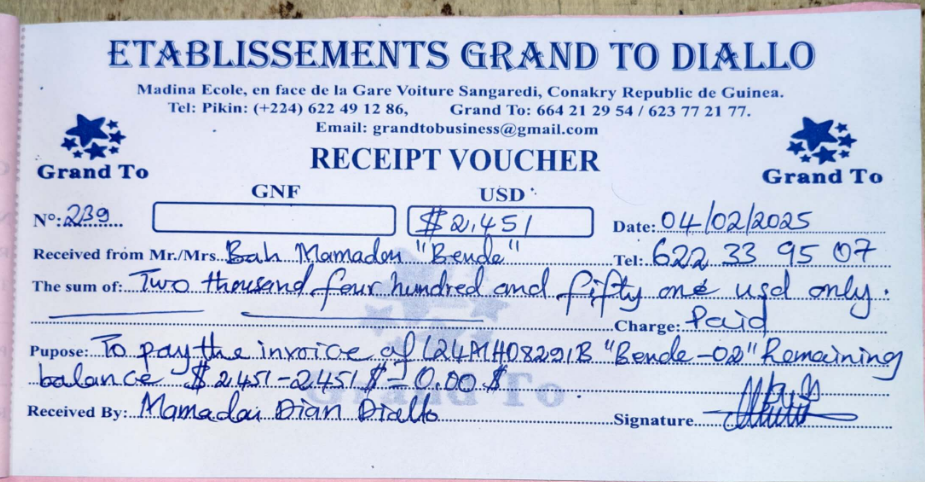 ETABLISSEMENTS GRAND TO DIALLO
Madina Ecole, en face de la Gare Voiture Sangaredi, Conakry Republic de Guinea.
Tel: Pikin: (+224) 622 49 12 86, Grand To: 664 21 29 54 / 623 77 21 77.
Email: grandtobusiness@gmail.com
Grand To
RECEIPT VOUCHER
Grand To
GNF USD
N°: 239 $2,451 Date: 04/02/2025
Received from Mr./Mrs. Bah Mamadou "Bende" Tel: 622 33 95 07
The sum of: Two thousand four hundred and fifty one usd only.
Charge: Paid
Pupose: To pay the invoice of L24MH08291B "Bende-02" Remaining
balance $2451-2451$=0.00$
Grand To
Received By: Mamadou Dian Diallo Signature